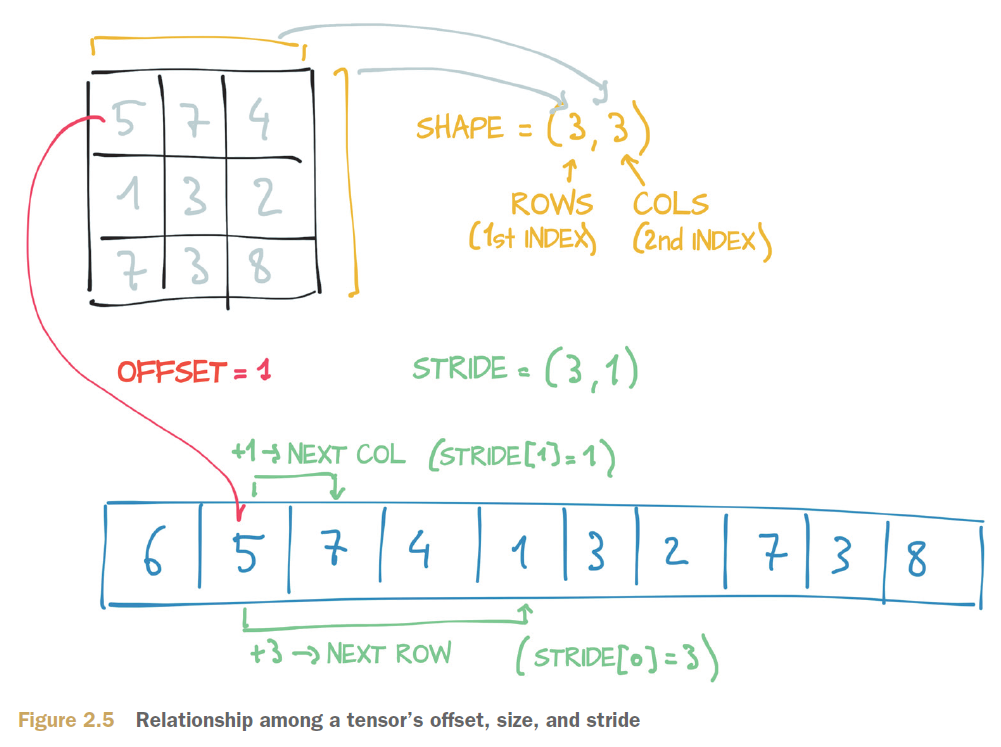 5 7 4
1 3 2
7 3 8
SHAPE = (3, 3)
ROWS
(1st INDEX)
COLS
(2nd INDEX)
OFFSET = 1
STRIDE = (3, 1)
+1 → NEXT COL (STRIDE[1] = 1)
6 5 7 4 1 3 2 7 3 8
+3 → NEXT ROW (STRIDE[0] = 3)
Figure 2.5 Relationship among a tensor's offset, size, and stride